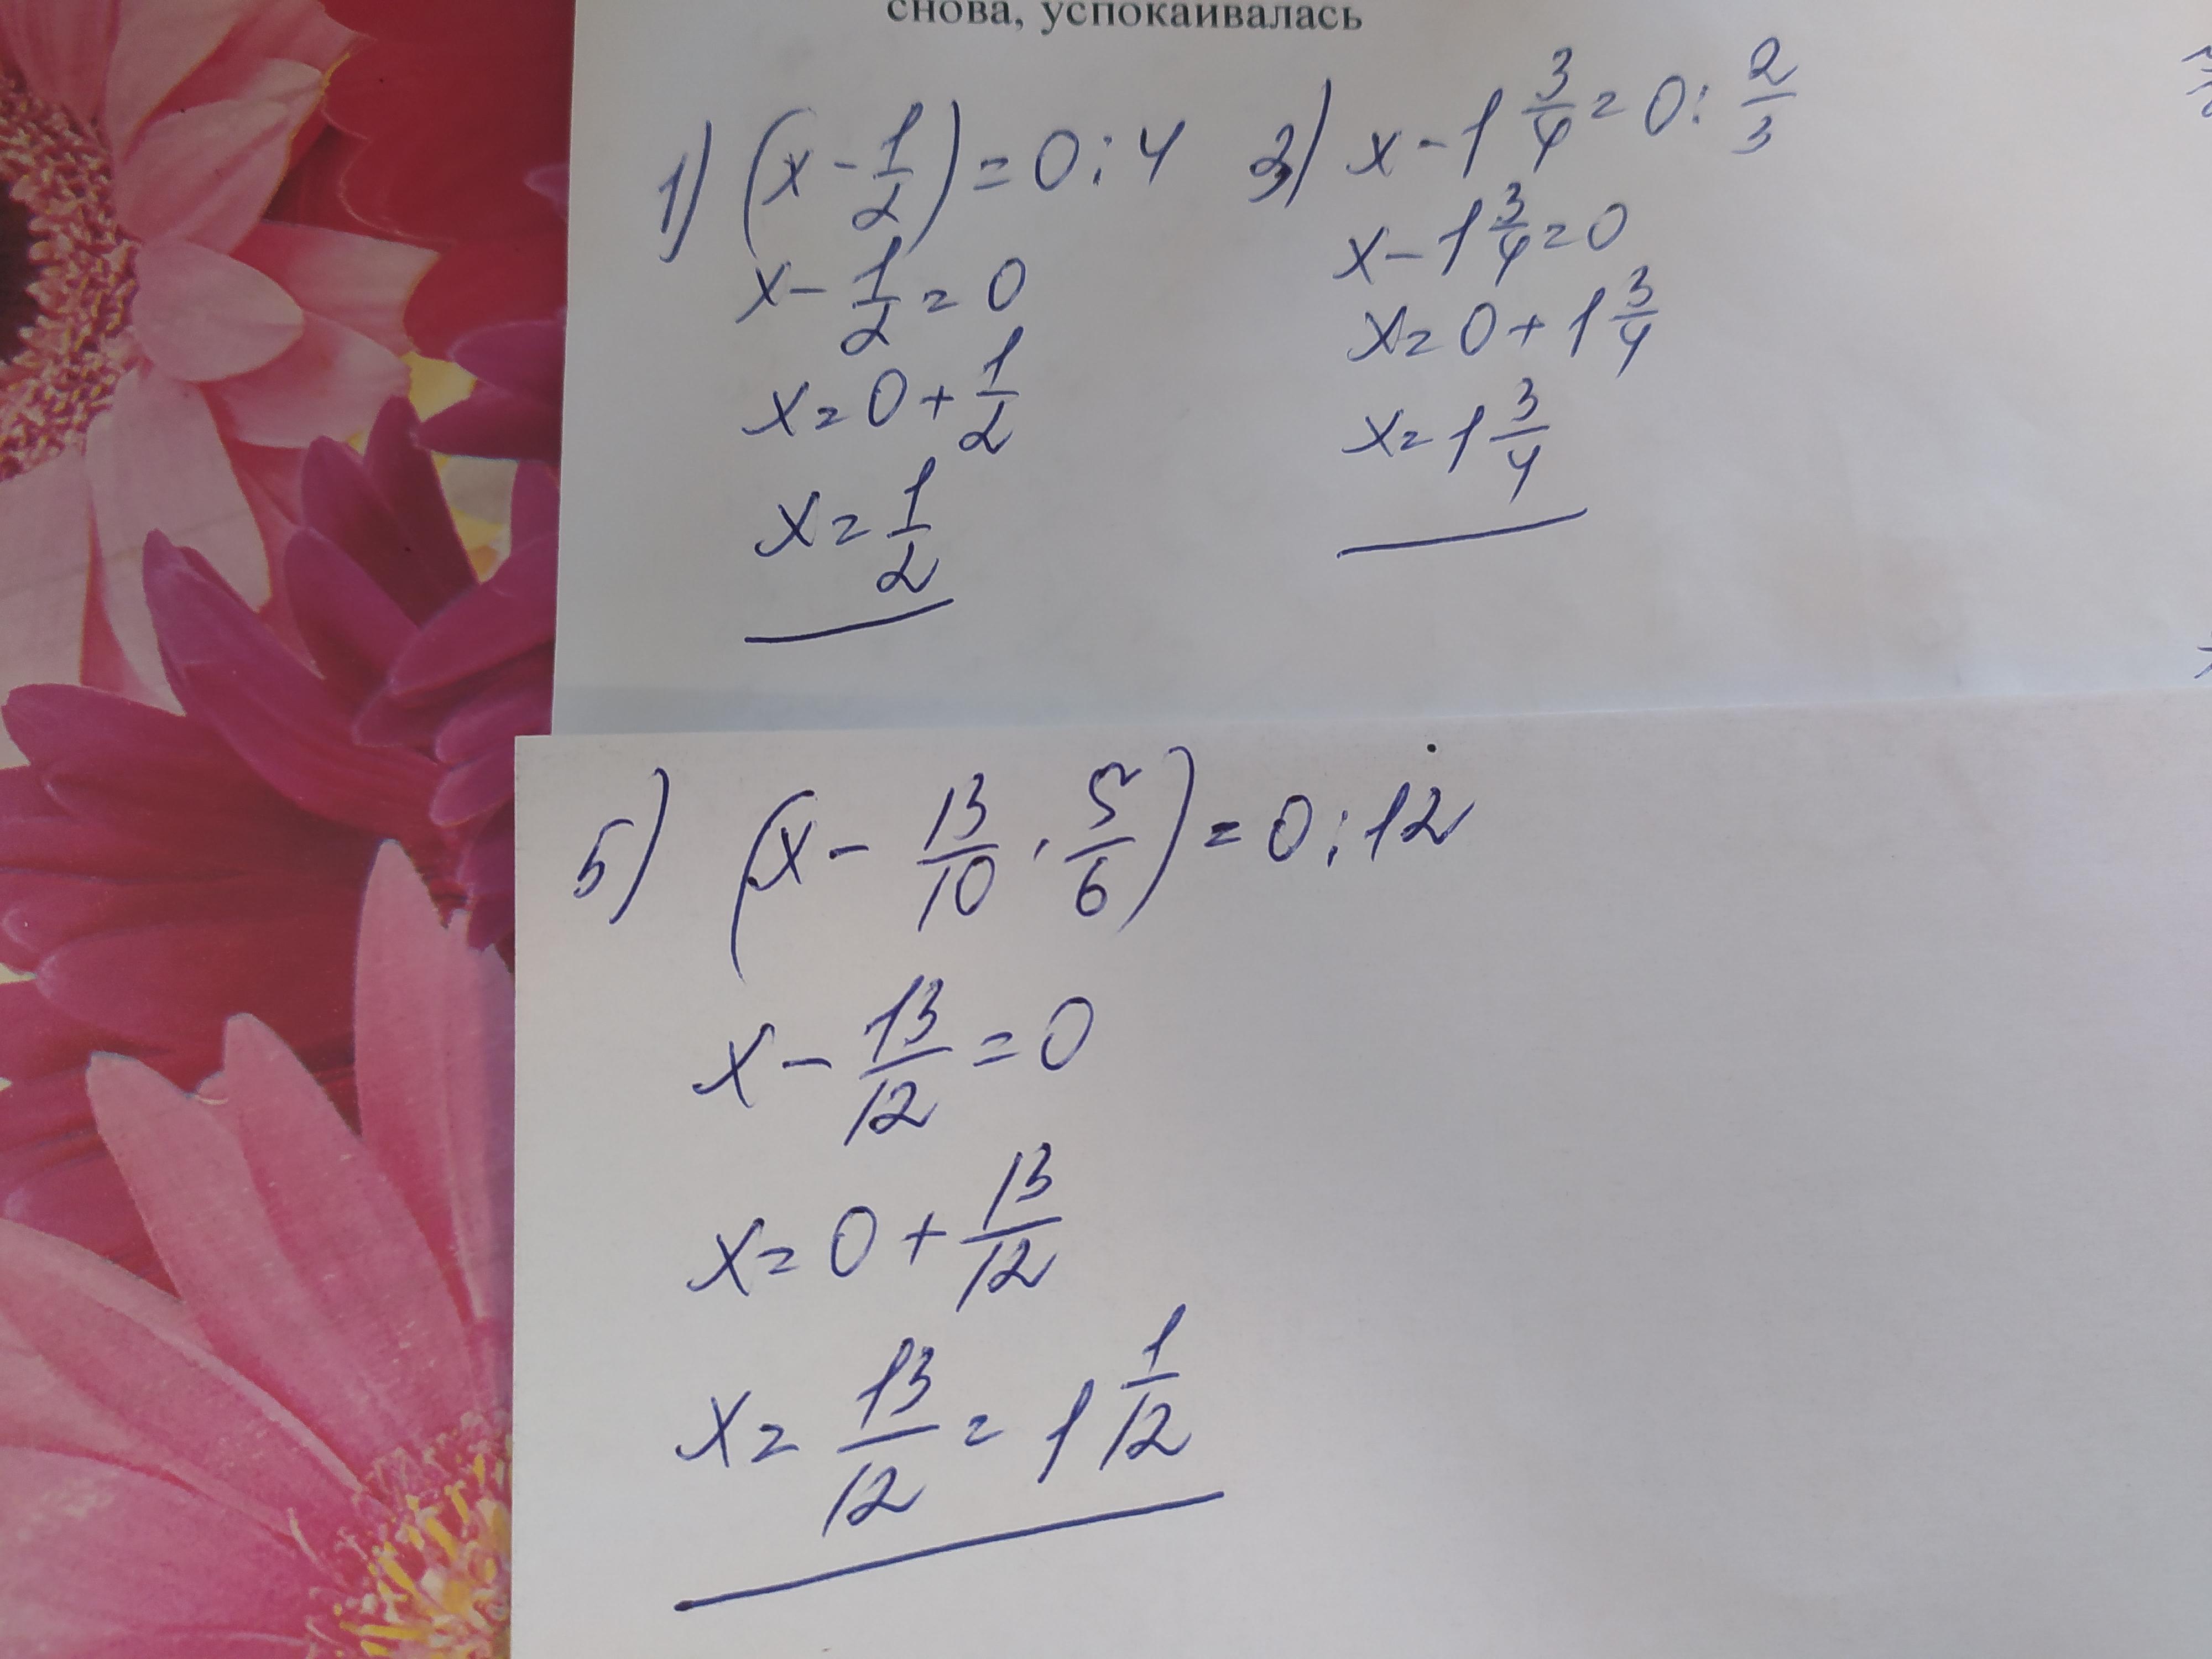 снова, успокаивалась
1) (x - 1/2) = 0 : 4
x - 1/2 = 0
x = 0 + 1/2
x = 1/2
3) x - 1 3/4 = 0 : 2/3
x - 1 3/4 = 0
x = 0 + 1 3/4
x = 1 3/4
5) (x - 13/10 · 5/6) = 0 : 12
x - 13/12 = 0
x = 0 + 13/12
x = 13/12 = 1 1/12